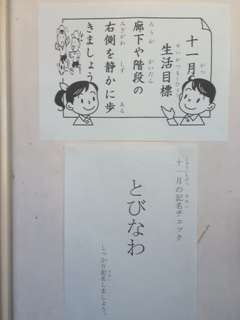 十一月の
生活目標
廊下や階段の
右側を静かに歩
きましょう
十一月の記名チェック
とびなわ
しっかり記名しましょう。